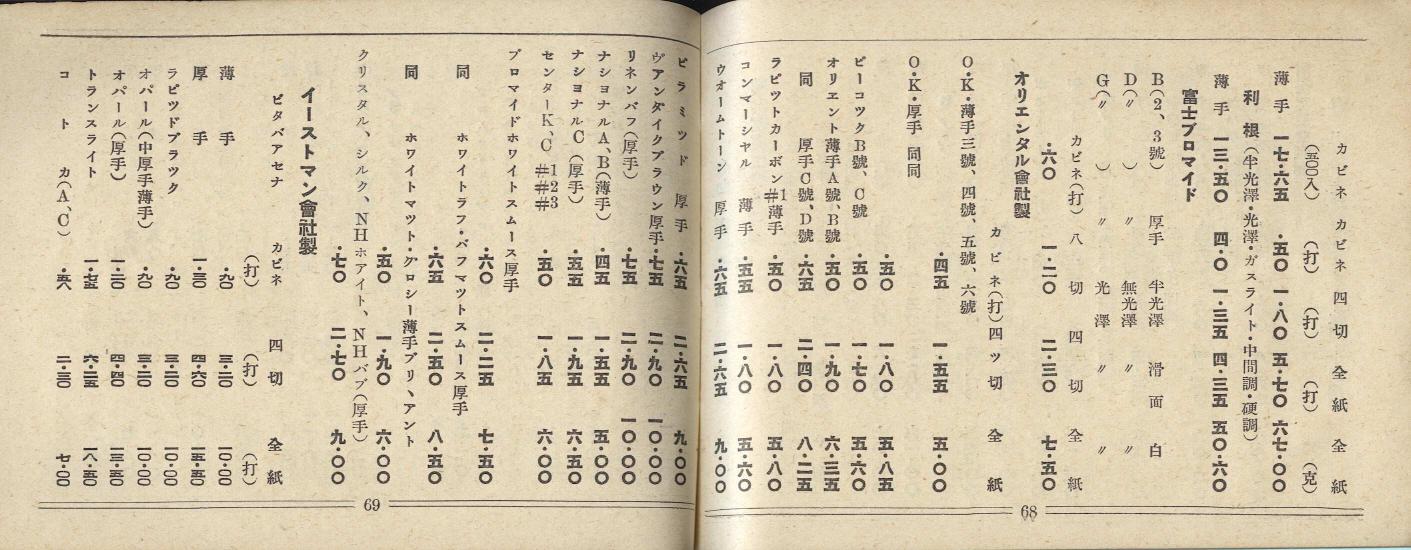 カビネ カビネ 四切 全紙 全紙
(五〇〇入) (打) (打) (打) (克)
薄手 一七・六五 ・五〇 一・八〇 五・七〇 六七・〇〇
利根(半光澤・光澤・ガスライト・中間調・硬調)
薄手 一三・五〇 四・〇 一・三五 四・三五 五〇・六〇
富士ブロマイド
B(2、3號) 厚手 半光澤 滑面 白
D(〃) 〃 無光澤 〃 〃
G(〃) 〃 光澤 〃 〃
カビネ(打) 八切 四切 全紙
・六〇 一・二〇 二・三〇 七・五〇
オリエンタル會社製
カビネ(打) 四ツ切 全紙
O・K・薄手三號、四號、五號、六號
・四五 一・五五 五・〇〇
O・K・厚手 同同
・五〇 一・八〇 五・八五
ピーコツクB號、C號 ・五〇 一・七〇 五・六〇
オリエント薄手A號、B號 ・六〇 一・九〇 六・三五
同 厚手C號、D號 ・六五 二・四〇 八・二五
ラピツトカーボン#1薄手 ・五〇 一・八〇 五・八〇
コンマーシヤル 薄手 ・五五 一・八〇 五・六〇
ウオームトーン 厚手 ・六五 二・六五 九・〇〇
68
ピラミツド 厚手 ・六五 二・六五 九・〇〇
ヴアンダイクブラウン厚手 ・七五 二・九〇 一〇・〇〇
リネンバフ(厚手) ・七五 二・九〇 一〇・〇〇
ナシヨナルA、B(薄手) ・四五 一・五五 五・〇〇
ナシヨナルC(厚手) ・五五 一・九五 六・五〇
センターK、C #1#2#3 ・五〇 一・八五 六・〇〇
ブロマイドホワイトスムース厚手
・六〇 二・二五 七・五〇
同 ホワイトラフ・バフマツトスムース厚手
・六五 二・五〇 八・五〇
同 ホワイトマツト・グロシー薄手プリ、アント
・五〇 一・九〇 六・〇〇
クリスタル、シルク、NHホアイト、NHバブ(厚手)
・七〇 二・七〇 九・〇〇
イーストマン會社製
ビタバアセナ カビネ 四切 全紙
(打) (打) (打)
薄手 ・九〇 三・二〇 一〇・〇〇
厚手 一・三〇 四・六〇 一五・五〇
ラピツドブラツク ・九〇 三・二〇 一〇・〇〇
オパール(中厚手薄手) ・九〇 三・二〇 一〇・〇〇
オパール(厚手) 一・二〇 四・四〇 一三・五〇
トランスライト 一・七五 六・二五 一八・五〇
コトカ(A、C) ・五八 二・二〇 七・〇〇
69